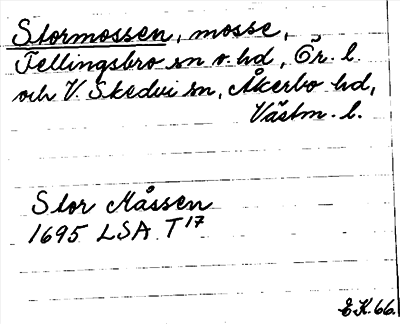 Stormossen, mosse,
Fellingsbro sn o. hd, Ör. l.
och V. Skedvi sn, Åkerbo hd,
Västm. l.
Stor Måssen
1695 LSA T17
E.K. 66.